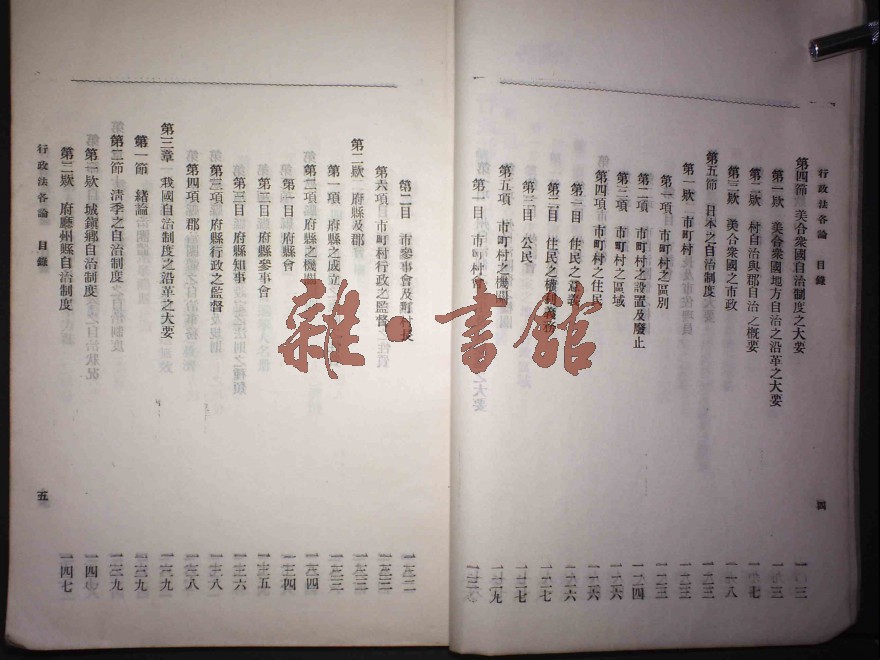 行政法各論 目錄
第四節 美合衆國自治制度之大要
第一欵 美合衆國地方自治之沿革之大要
第二欵 村自治與郡自治之概要
第三欵 美合衆國之市政
第五節 日本之自治制度
第一欵 市町村
第一項 市町村之區別
第二項 市町村之設置及廢止
第三項 市町村之區域
第四項 市町村之住民
第一目 住民之意義
第二目 住民之權利義務
第三目 公民
第五項 市町村之機關
第一目 市町村會
四
第二目 市參事會及町村長
第六項 市町村行政之監督
第二欵 府縣及郡
第一項 府縣之成立
第二項 府縣之機關
第一目 府縣會
第二目 府縣參事會
第三目 府縣知事
第三項 府縣行政之監督
第四項 郡
第三章 我國自治制度之沿革之大要
第一節 緒論
第二節 淸季之自治制度
第一欵 城鎭鄉自治制度
第二欵 府廳州縣自治制度
一三三
一三四
一三五
一三六
一三八
一三八
一三九
一三九
一三九
一四七
行政法各論 目錄
五
雜·書館